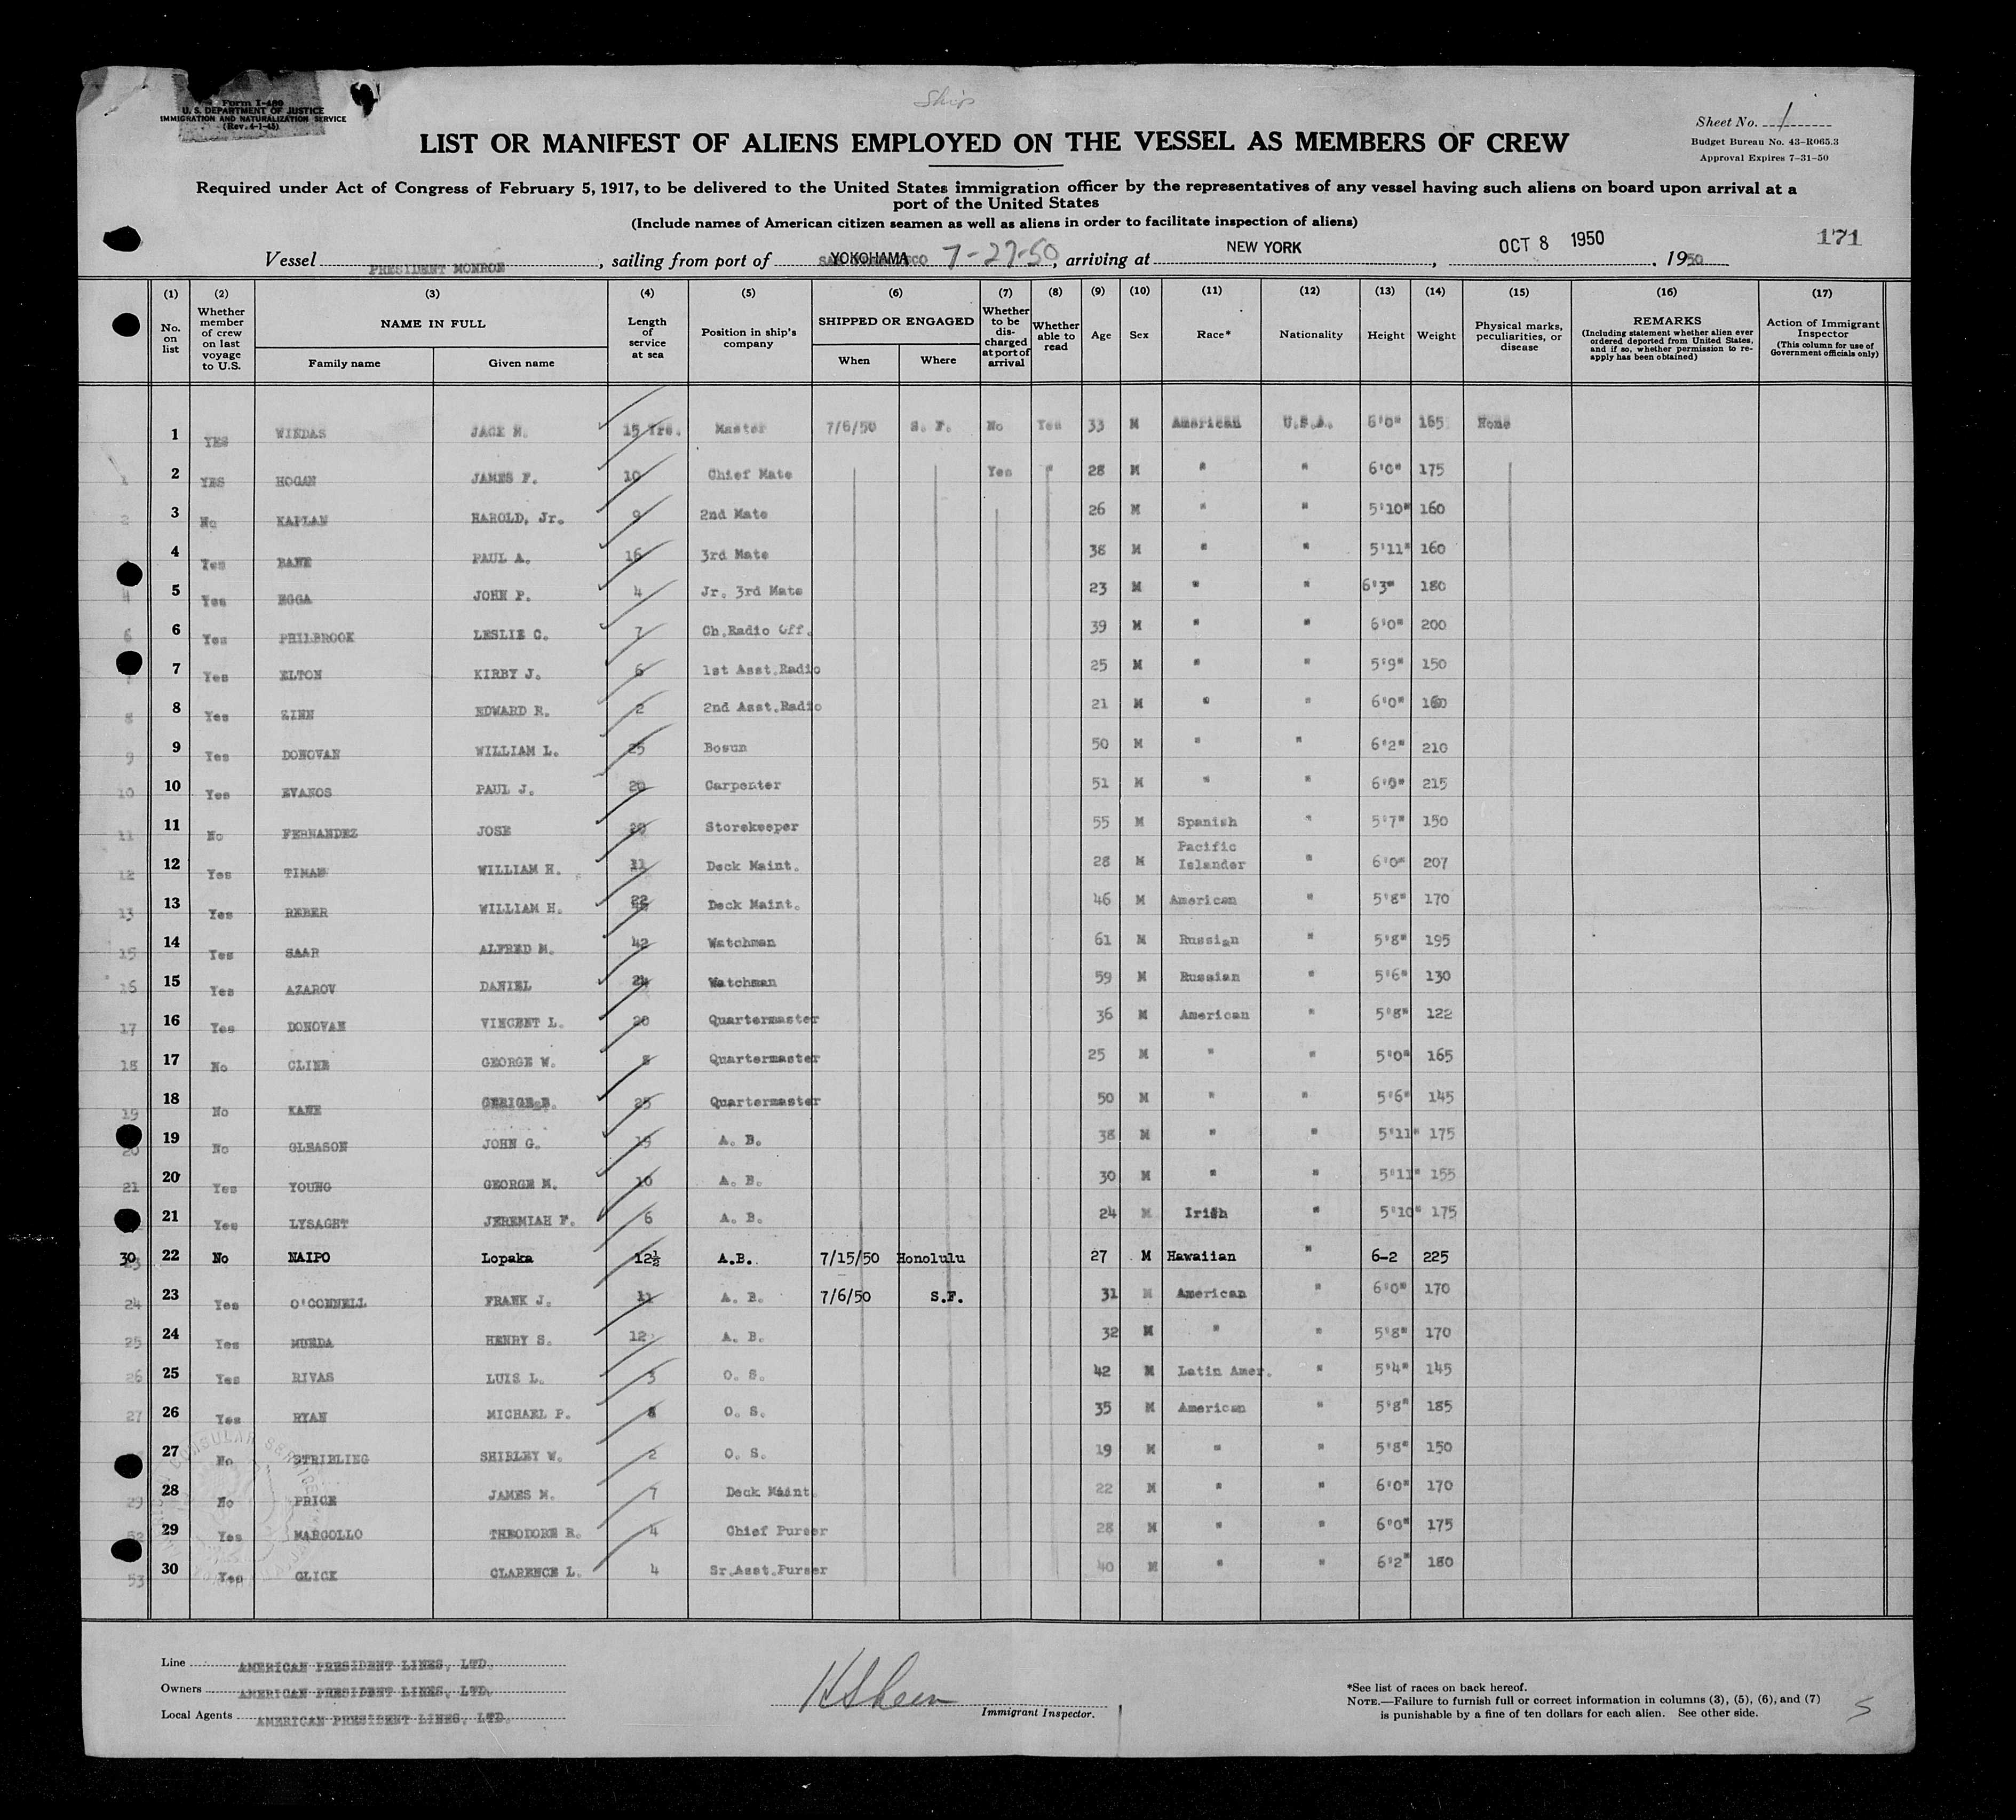 Ship
Form I-480
U. S. DEPARTMENT OF JUSTICE
IMMIGRATION AND NATURALIZATION SERVICE
(Rev. 4-1-48)
Sheet No. 1
Budget Bureau No. 43-R065.3
Approval Expires 7-31-50
LIST OR MANIFEST OF ALIENS EMPLOYED ON THE VESSEL AS MEMBERS OF CREW
Required under Act of Congress of February 5, 1917, to be delivered to the United States immigration officer by the representatives of any vessel having such aliens on board upon arrival at a
port of the United States
(Include names of American citizen seamen as well as aliens in order to facilitate inspection of aliens)
171
Vessel PRESIDENT MONROE, sailing from port of YOKOHAMA 7-27-50, arriving at NEW YORK, OCT 8 1950, 1950
(1) No. on list
(2) Whether member of crew on last voyage to U.S.
(3) NAME IN FULL Family name Given name
(4) Length of service at sea
(5) Position in ship's company
(6) SHIPPED OR ENGAGED When Where
(7) Whether to be discharged at port of arrival
(8) Whether able to read
(9) Age
(10) Sex
(11) Race*
(12) Nationality
(13) Height
(14) Weight
(15) Physical marks, peculiarities, or disease
(16) REMARKS (Including statement whether alien ever ordered deported from United States, and if so, whether permission to reapply has been obtained)
(17) Action of Immigrant Inspector (This column for use of Government officials only)
1 YES WINDAS JACK M. 15 Yrs. Master 7/6/50 S. F. No Yes 33 M American U.S.A. 6'0" 165 None
1 2 YES HOGAN JAMES F. 10 Chief Mate Yes " 28 M " " 6'0" 175
2 3 No KAPLAN HAROLD, Jr. 9 2nd Mate 26 M " " 5'10" 160
4 Yes BANE PAUL A. 16 3rd Mate 38 M " " 5'11" 160
4 5 Yes EGGA JOHN P. 4 Jr. 3rd Mate 23 M " " 6'3" 180
6 6 Yes PHILBROOK LESLIE C. 7 Ch.Radio Off. 39 M " " 6'0" 200
7 7 Yes ELTON KIRBY J. 6 1st Asst.Radio 25 M " " 5'9" 150
8 8 Yes ZINN EDWARD R. 2 2nd Asst.Radio 21 M " " 6'0" 160
9 9 Yes DONOVAN WILLIAM L. 25 Bosun 50 M " " 6'2" 210
10 10 Yes EVANOS PAUL J. 20 Carpenter 51 M " " 6'0" 215
11 11 No FERNANDEZ JOSE 20 Storekeeper 55 M Spanish " 5'7" 150
12 12 Yes TIMAN WILLIAM H. 11 Deck Maint. 28 M Pacific Islander " 6'0" 207
13 13 Yes REBER WILLIAM H. 22 Deck Maint. 46 M American " 5'8" 170
15 14 Yes SAAR ALFRED M. 42 Watchman 61 M Russian " 5'8" 195
16 15 Yes AZAROV DANIEL 24 Watchman 59 M Russian " 5'6" 130
17 16 Yes DONOVAN VINCENT L. 20 Quartermaster 36 M American " 5'8" 122
18 17 No CLINE GEORGE W. 8 Quartermaster 25 M " " 5'0" 165
19 18 No KANE 25 Quartermaster 50 M " " 5'6" 145
20 19 No GLEASON JOHN G. 19 A. B. 38 M " " 5'11" 175
21 20 Yes YOUNG GEORGE M. 10 A. B. 30 M " " 5'11" 155
21 Yes LYSAGHT JEREMIAH F. 6 A. B. 24 M Irish " 5'10" 175
30 22 No NAIPO Lopaka 12½ A.B. 7/15/50 Honolulu 27 M Hawaiian " 6-2 225
24 23 Yes O'CONNELL FRANK J. 11 A. B. 7/6/50 S.F. 31 M American " 6'0" 170
25 24 Yes MUEDA HENRY S. 12 A. B. 32 M " " 5'8" 170
26 25 Yes RIVAS LUIS L. 3 O. S. 42 M Latin Amer. " 5'4" 145
27 26 Yes RYAN MICHAEL P. 8 O. S. 35 M American " 5'8" 185
27 No STRIBLING SHIRLEY W. 2 O. S. 19 M " " 5'8" 150
29 28 No PRICE JAMES M. 7 Deck Maint. 22 M " " 6'0" 170
52 29 Yes MARGOLLO THEODORE R. 4 Chief Purser 28 M " " 6'0" 175
53 30 Yes GLICK CLARENCE L. 4 Sr.Asst.Purser 40 M " " 6'2" 180
Line AMERICAN PRESIDENT LINES, LTD.
Owners AMERICAN PRESIDENT LINES, LTD.
Local Agents AMERICAN PRESIDENT LINES, LTD.
Immigrant Inspector.
*See list of races on back hereof.
NOTE.—Failure to furnish full or correct information in columns (3), (5), (6), and (7)
is punishable by a fine of ten dollars for each alien. See other side.
5